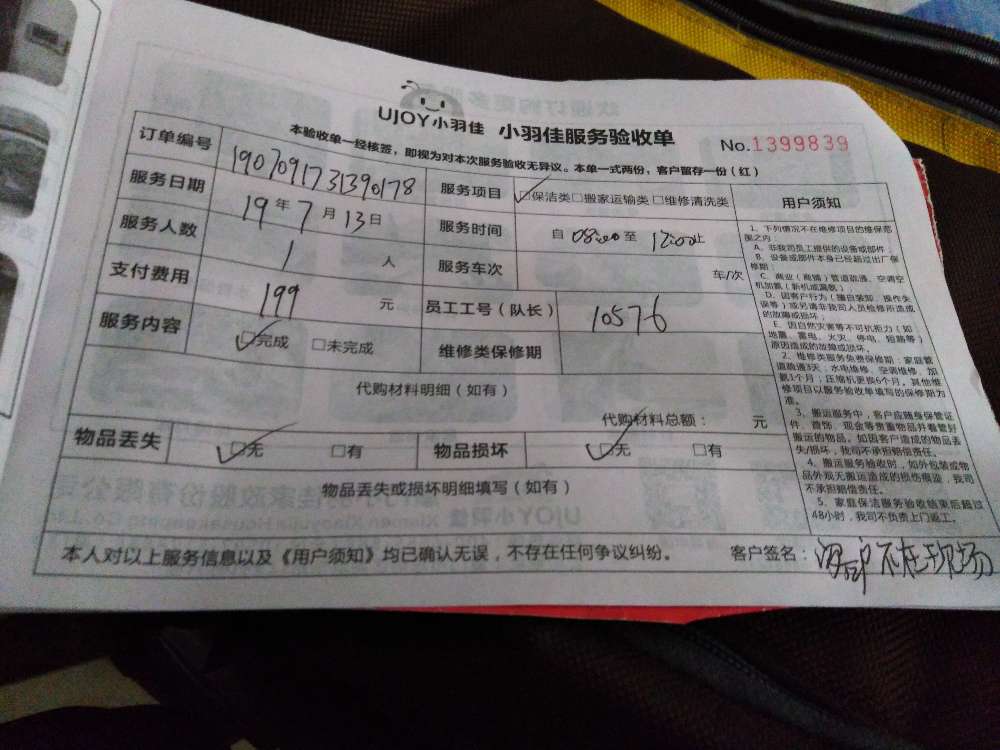 UJOY小羽佳 小羽佳服务验收单
No.1399839
本验收单一经核签，即视为对本次服务验收无异议。本单一式两份，客户留存一份（红）
订单编号 1907091731390178 服务项目 ☑保洁类□搬家运输类□维修清洗类 用户须知
服务日期 19年7月13日 服务时间 自08:00至12:00止
服务人数 1人 服务车次 车/次
支付费用 199元 员工工号（队长） 10576
服务内容 ☑完成 □未完成 维修类保修期
代购材料明细（如有）
代购材料总额： 元
物品丢失 ☑无 □有 物品损坏 ☑无 □有
物品丢失或损坏明细填写（如有）
1、下列情况不在维修项目的维保范
围之内：
A、非我司员工提供的设备或部件；
B、设备或部件本身已经超过出厂保
修期；
C、商业（商铺）管道疏通、空调空
机加氟（新机或漏氟）；
D、因客户行为（擅自装卸、操作失
误等）或另请非我司人员检修所造成
的故障或损坏；
E、因自然灾害等不可抗拒力（如
地震、雷电、火灾、停电、短路等）
原因造成的故障或损坏。
2、维修类服务免费保修期：家庭管
道疏通3天；水电维修、空调维修、加
氟1个月；压缩机更换6个月。其他维
修项目以服务验收单填写的保修期为
准。
3、搬运服务中，客户应随身保管证
件、首饰、现金等贵重物品并看管好
搬运的物品。如因客户造成的物品丢
失/损坏，我司不承担赔偿责任。
4、搬运服务验收时，如外包装或物
品外观无搬运造成的损伤痕迹，我司
不承担赔偿责任。
5、家庭保洁服务验收结束后超过
48小时，我司不负责上门返工。
本人对以上服务信息以及《用户须知》均已确认无误，不存在任何争议纠纷。 客户签名：客户不在现场